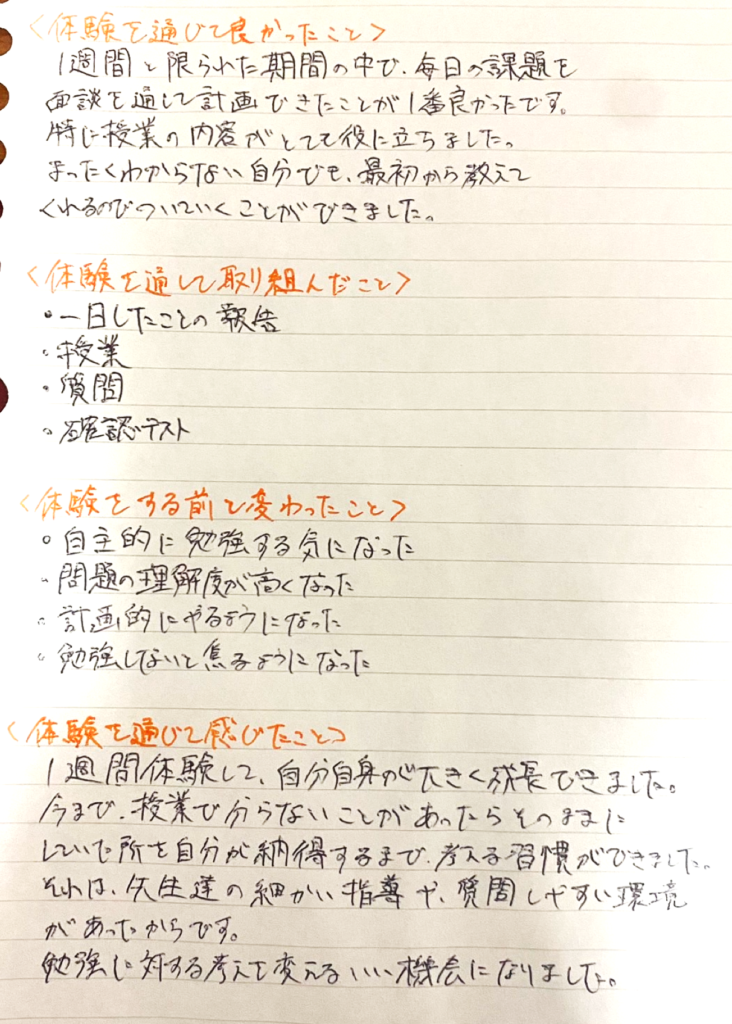 <体験を通じて良かったこと>
1週間と限られた期間の中で、毎日の課題を
面談を通して計画できたことが1番良かったです。
特に授業の内容がとても役に立ちました。
まったくわからない自分でも、最初から教えて
くれるのでついていくことができました。
<体験を通して取り組んだこと>
・一日したことの報告
・授業
・質問
・確認テスト
<体験をする前と変わったこと>
・自主的に勉強する気になった
・問題の理解度が高くなった
・計画的にやるようになった
・勉強しないと焦るようになった
<体験を通じて感じたこと>
1週間体験して、自分自身が大きく成長できました。
今まで、授業で分らないことがあったらそのままに
していた所を自分が納得するまで、考える習慣ができました。
それは、先生達の細かい指導や、質問しやすい環境
があったからです。
勉強に対する考えを変えるいい機会になりました。